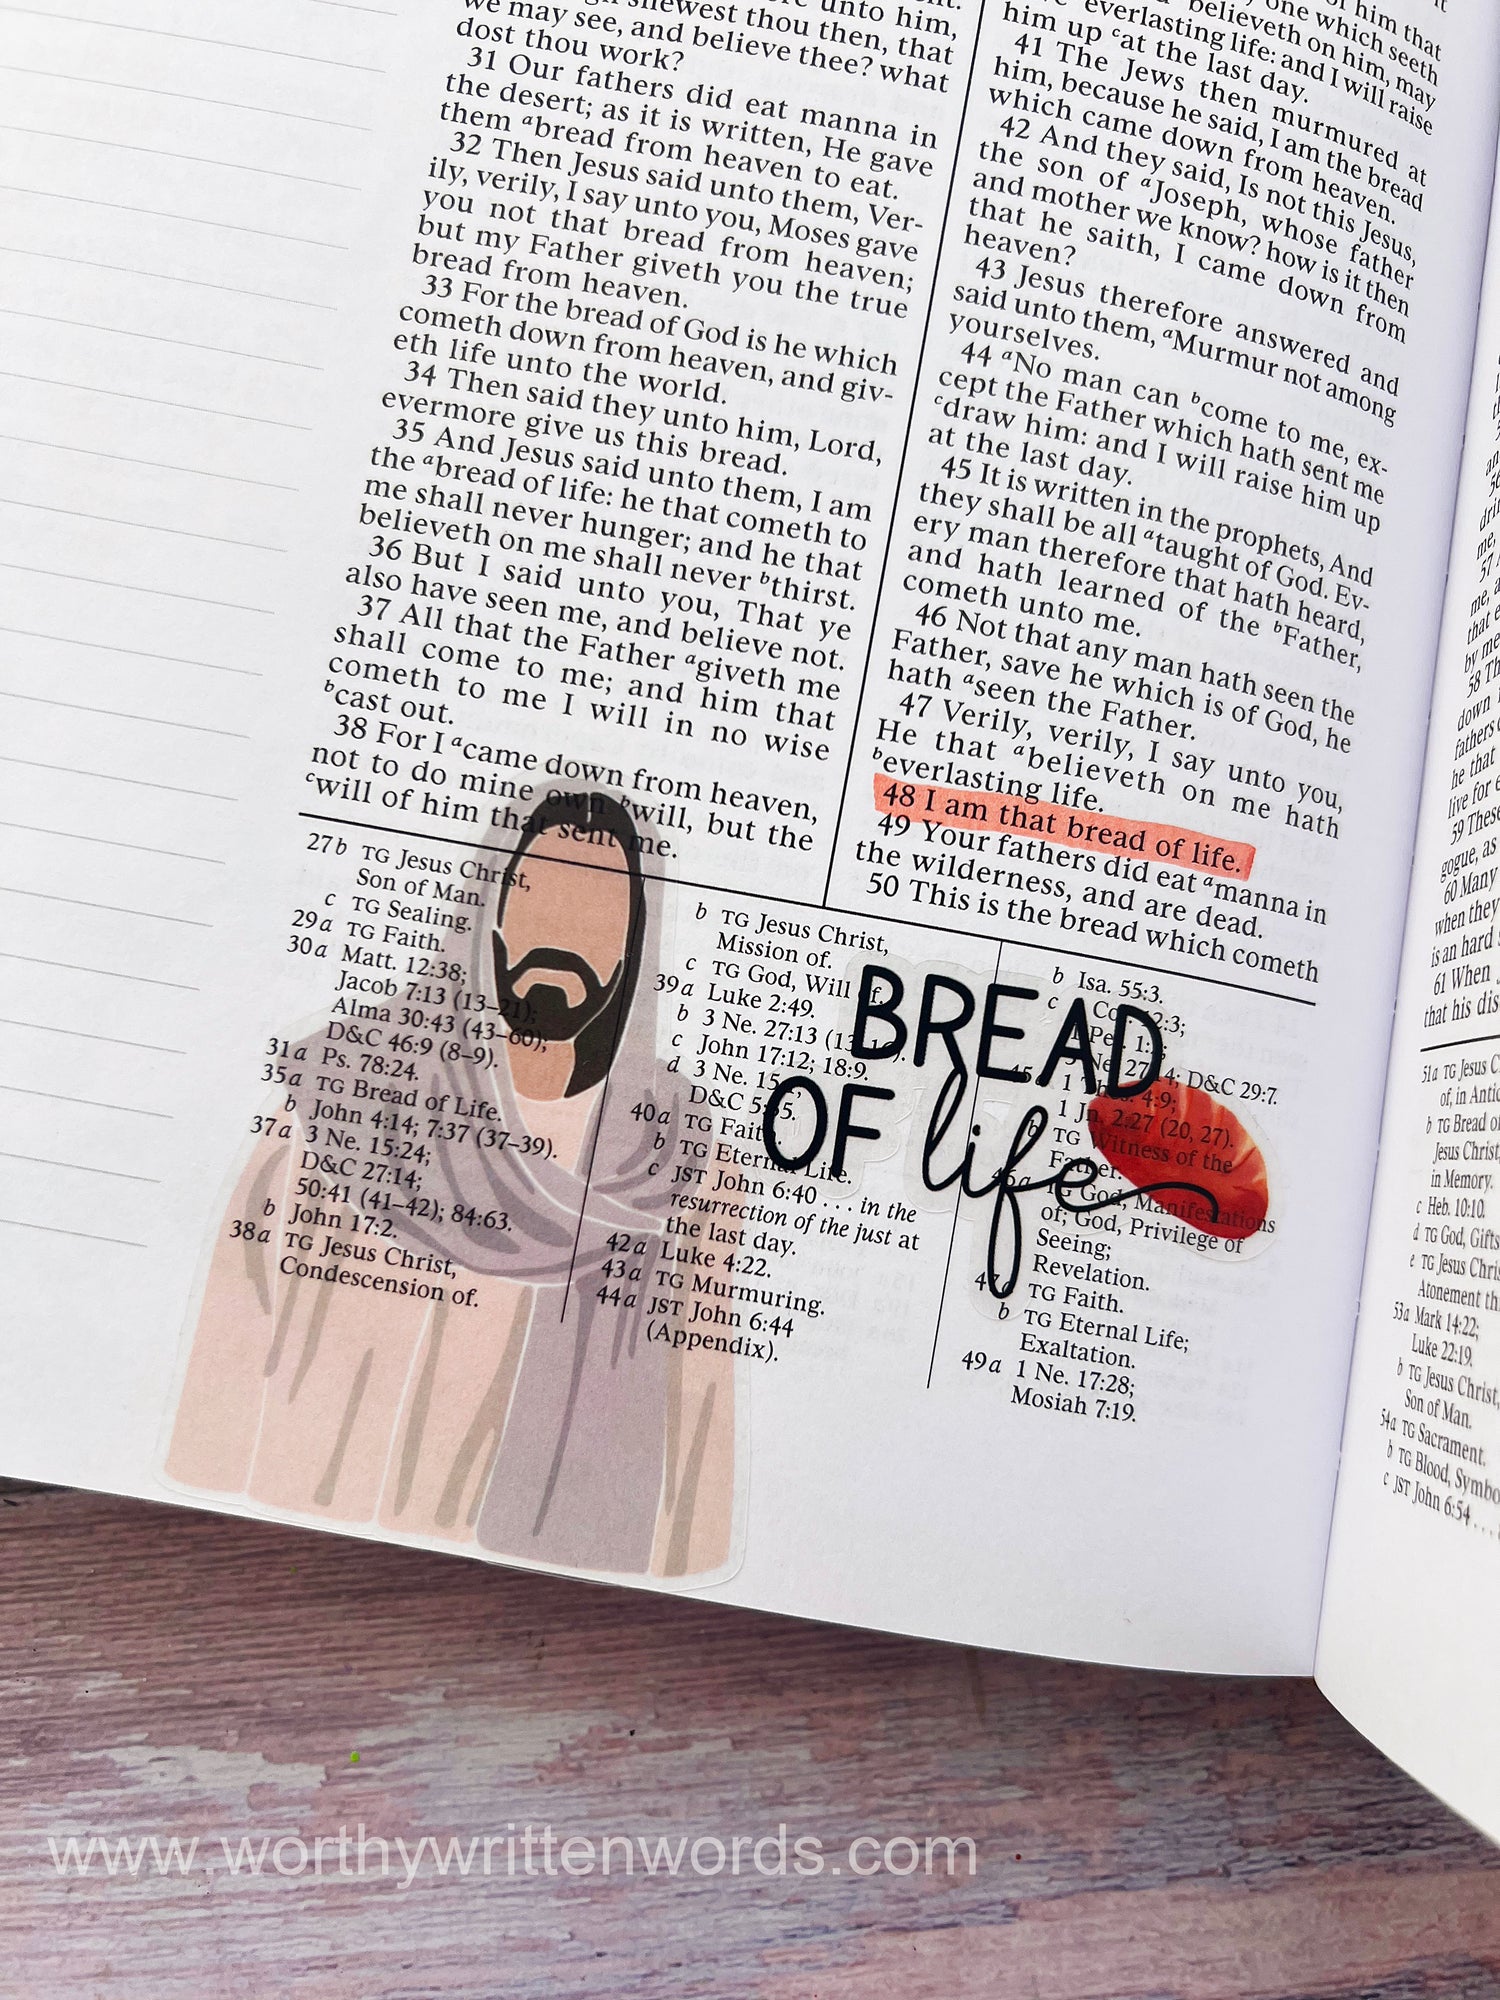 unto him,
shewest thou then, that
we may see, and believe thee? what
dost thou work?
31 Our fathers did eat manna in
the desert; as it is written, He gave
them ᵃbread from heaven to eat.
32 Then Jesus said unto them, Ver-
ily, verily, I say unto you, Moses gave
you not that bread from heaven;
but my Father giveth you the true
bread from heaven.
33 For the bread of God is he which
cometh down from heaven, and giv-
eth life unto the world.
34 Then said they unto him, Lord,
evermore give us this bread.
35 And Jesus said unto them, I am
the ᵃbread of life: he that cometh to
me shall never hunger; and he that
believeth on me shall never ᵇthirst.
36 But I said unto you, That ye
also have seen me, and believe not.
37 All that the Father ᵃgiveth me
shall come to me; and him that
cometh to me I will in no wise
ᵇcast out.
38 For I ᵃcame down from heaven,
not to do mine own ᵇwill, but the
ᶜwill of him that sent me.
of him that
one which seeth
believeth on him, may
everlasting life: and I will raise
him up ᶜat the last day.
41 The Jews then murmured at
him, because he said, I am the bread
which came down from heaven.
42 And they said, Is not this Jesus,
the son of ᵃJoseph, whose father
and mother we know? how is it then
that he saith, I came down from
heaven?
43 Jesus therefore answered and
said unto them, ᵃMurmur not among
yourselves.
44 ᵃNo man can ᵇcome to me, ex-
cept the Father which hath sent me
ᶜdraw him: and I will raise him up
at the last day.
45 It is written in the prophets, And
they shall be all ᵃtaught of God. Ev-
ery man therefore that hath heard,
and hath learned of the ᵇFather,
cometh unto me.
46 Not that any man hath seen the
Father, save he which is of God, he
hath ᵃseen the Father.
47 Verily, verily, I say unto you,
He that ᵃbelieveth on me hath
ᵇeverlasting life.
48 I am that bread of life.
49 Your fathers did eat ᵃmanna in
the wilderness, and are dead.
50 This is the bread which cometh
27b TG Jesus Christ,
Son of Man.
c TG Sealing.
29a TG Faith.
30a Matt. 12:38;
Jacob 7:13 (13–21);
Alma 30:43 (43–60);
D&C 46:9 (8–9).
31a Ps. 78:24.
35a TG Bread of Life.
b John 4:14; 7:37 (37–39).
37a 3 Ne. 15:24;
D&C 27:14;
50:41 (41–42); 84:63.
b John 17:2.
38a TG Jesus Christ,
Condescension of.
b TG Jesus Christ,
Mission of.
c TG God, Will of.
39a Luke 2:49.
b 3 Ne. 27:13
c John 17:12; 18:9.
d 3 Ne.
D&C
40a TG Faith.
b TG Eternal Life.
c JST John 6:40 . . . in the
resurrection of the just at
the last day.
42a Luke 4:22.
43a TG Murmuring.
44a JST John 6:44
(Appendix).
b Isa. 55:3.
c
D&C 29:7.
1 Jn. 2:27 (20, 27).
b TG Witness of the
Father.
46a TG God, Manifestations
of; God, Privilege of
Seeing;
Revelation.
47a TG Faith.
b TG Eternal Life;
Exaltation.
49a 1 Ne. 17:28;
Mosiah 7:19.
BREAD
OF life
57
58
down
fathers
he that
live for
59 These
gogue, as
60 Many
when they
is an hard
61 When
that his dis
51a TG Jesus
of, in
b TG Bread
Jesus Christ,
in Memory.
c Heb. 10:10.
d TG God, Gifts
e TG Jesus
Atonement
53a Mark 14:22;
Luke 22:19.
b TG Jesus Christ,
Son of Man.
54a TG Sacrament.
b TG Blood,
c JST John 6:54 . . .
www.worthywrittenwords.com